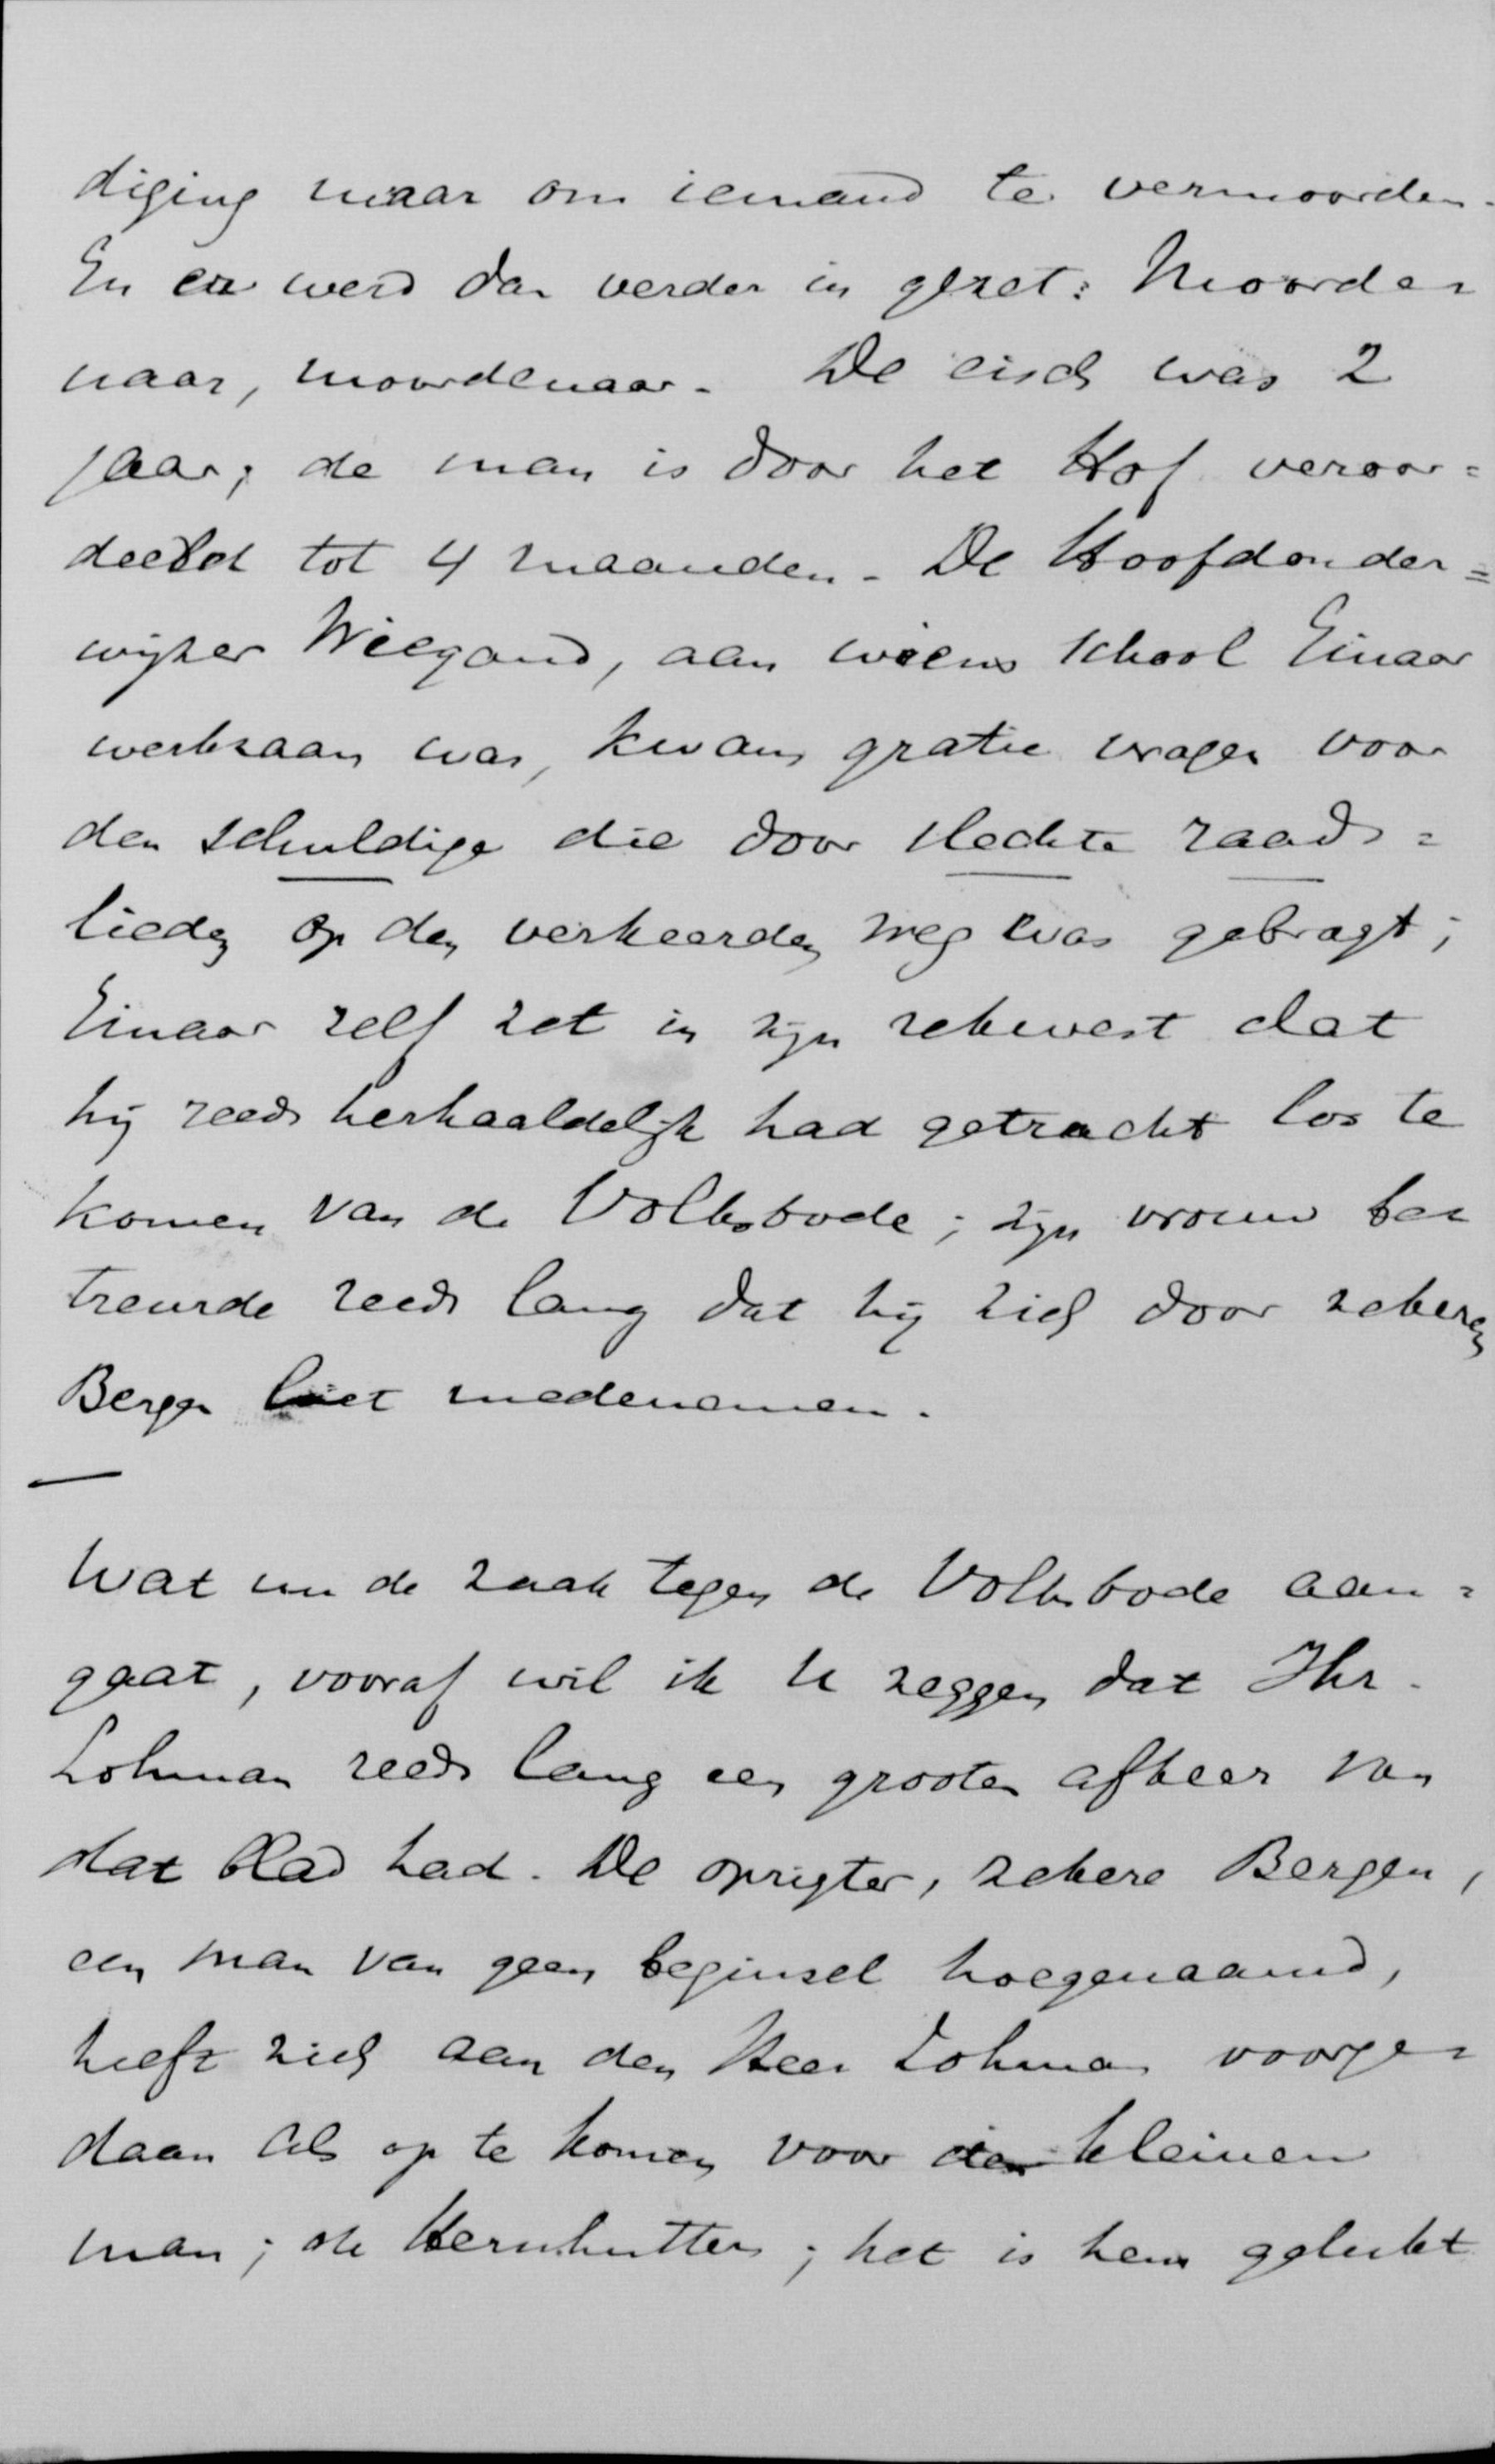 diging maar om iemand te vermoorden.
En er werd dan verder in gezet: Moorde=
naar, moordenaar. De eisch was 2
jaar; de man is door het Hof veroor=
deeld tot 4 maanden. De Hoofdonder=
wijzer Wiegand, aan wiens school Einaar
werkzaam was, kwam gratie vragen voor
den schuldige die door slechte raads=
lieden op den verkeerden weg was gebragt;
Einaar zelf zet in zijn rekwest dat
hij reeds herhaaldelijk had getracht los te
komen van de Volksbode; zijn vrouw be=
treurde reeds lang dat hij zich door zekeren
Bergen liet medenemen.
—
Wat nu de zaak tegen de Volksbode aan=
gaat, vooraf wil ik U zeggen dat Jhr.
Lohman reeds lang een grooten afkeer van
dat blad had. De oprigter, zekere Bergen,
een man van geen beginsel hoegenaamd,
heeft zich aan den Heer Lohman voorge=
daan als op te komen voor den kleinen
man; de Hernhutters; het is hem gelukt